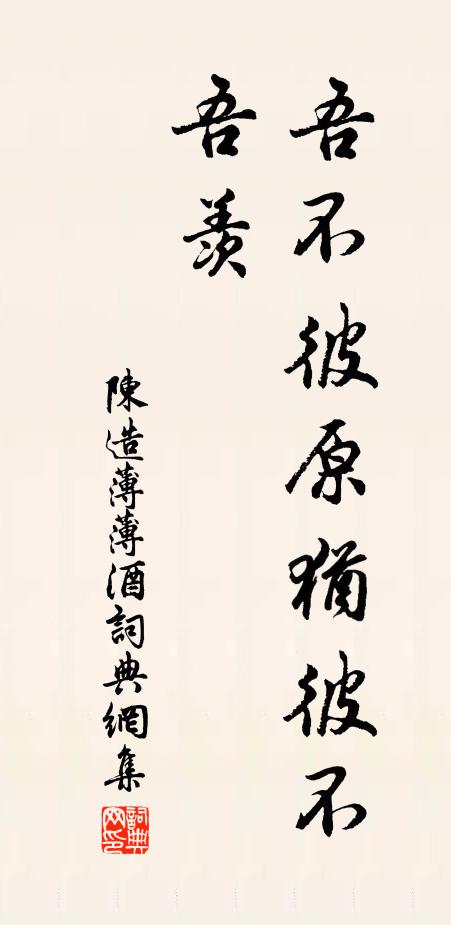 吾不彼原猶彼不
吾羨
陳造薄薄酒詞典網集
詞典
网印